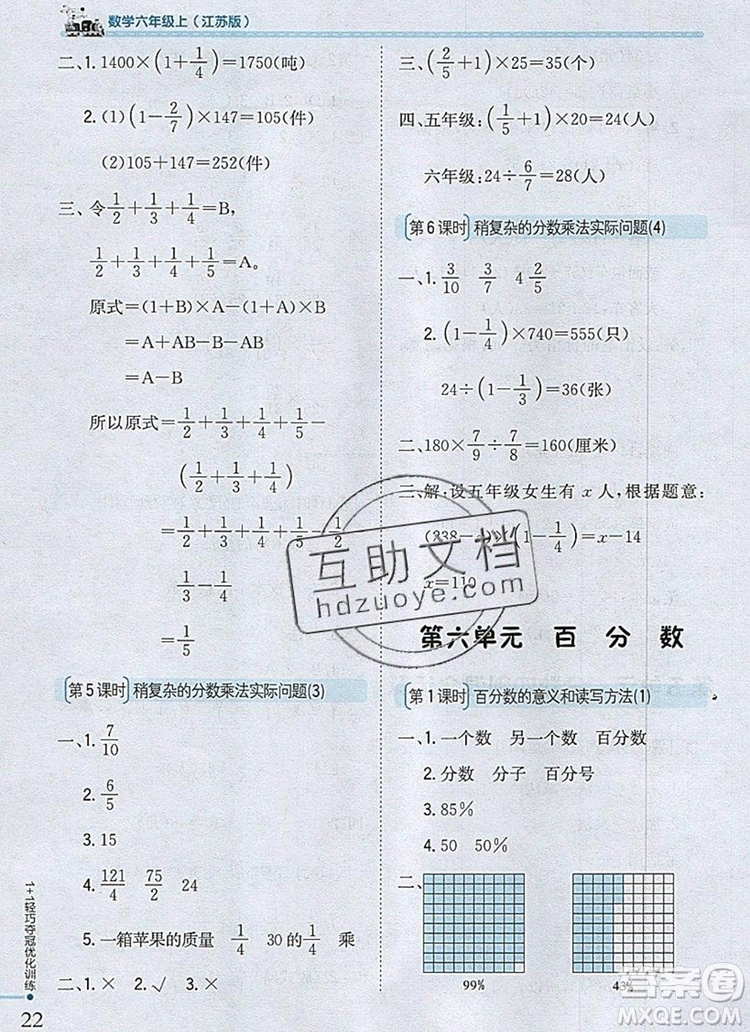 数学六年级上(江苏版)
二、1. 1400×(1+1/4)=1750(吨)
2. (1)(1-2/7)×147=105(件)
(2)105+147=252(件)
三、令1/2+1/3+1/4=B,
1/2+1/3+1/4+1/5=A。
原式=(1+B)×A-(1+A)×B
=A+AB-B-AB
=A-B
所以原式=1/2+1/3+1/4+1/5-
(1/2+1/3+1/4)
=1/2+1/3+1/4+1/5-1/2-
1/3-1/4
=1/5
第5课时 稍复杂的分数乘法实际问题(3)
一、1. 7/10
2. 6/5
3. 15
4. 121/4 75/2 24
5. 一箱苹果的质量 1/4 30的1/4 乘
二、1. × 2. √ 3. √
1+1轻巧夺冠优化训练
22
三、(2/5+1)×25=35(个)
四、五年级:(1/5+1)×20=24(人)
六年级:24÷6/7=28(人)
第6课时 稍复杂的分数乘法实际问题(4)
一、1. 3/10 3/7 4 2/5
2. (1-1/4)×740=555(只)
24÷(1-1/3)=36(张)
二、180×7/9÷7/8=160(厘米)
三、解:设五年级女生有x人,根据题意:
(1-1/4)=x-14
x=110
第六单元 百分数
第1课时 百分数的意义和读写方法(1)
一、1. 一个数 另一个数 百分数
2. 分数 分子 百分号
3. 85%
4. 50 50%
二、
99% 43%
互助文档
hdzuoye.com
答案圈
MXQE.COM